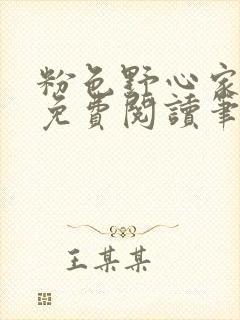 粉色野心家
免費閱讀筆
王某某